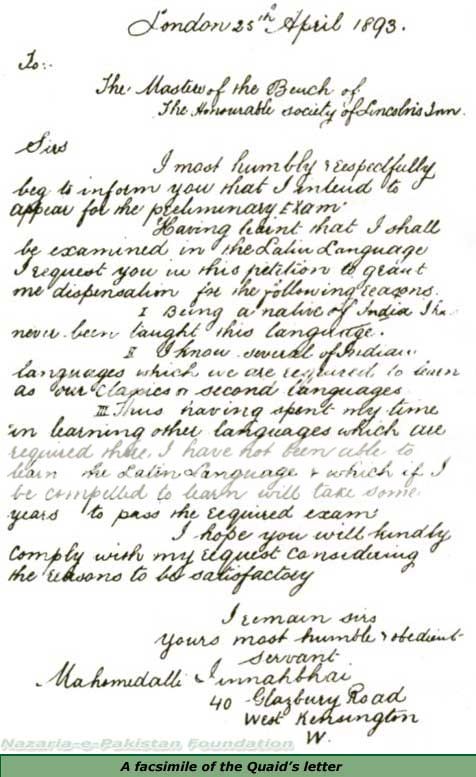 London 25th April 1893.
To:-
The Masters of the Bench of
The Honourable society of Lincoln's Inn.
Sirs
I most humbly & respectfully
beg to inform you that I intend to
appear for the preliminary Exam.
Having learnt that I shall
be examined in the Latin Language
I request you in this petition to grant
me dispensation for the following reasons.
I Being a native of India I ha
never been taught this language.
II I know several of Indian
languages which we are required to learn
as our classics or second languages
III Thus having spent my time
in learning other languages which are
required there, I have not been able to
learn the Latin Language & which if I
be compelled to learn will take some
years to pass the required exam
I hope you will kindly
comply with my request considering
the reasons to be satisfactory
I remain sirs
yours most humble & obedient
servant
Mahomedalli Jinnahbhai
40 Glazbury Road
West Kensington
W.
Nazaria-e-Pakistan Foundation
A facsimile of the Quaid's letter